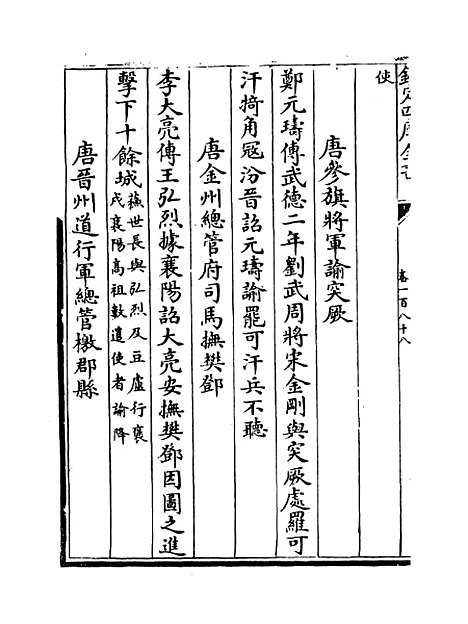 欽定四庫全書
卷一百八十八
使
唐參旗將軍諭突厥
鄭元璹傳武德二年劉武周將宋金剛與突厥處羅可
汗掎角寇汾晉詔元璹諭罷可汗兵不聽
唐金州總管府司馬撫樊鄧
李大亮傳王弘烈據襄陽詔大亮安撫樊鄧因圖之進
擊下十餘城蘇世長與弘烈及豆盧行褒
戍襄陽高祖數遣使者諭降
唐晉州道行軍總管檄郡縣